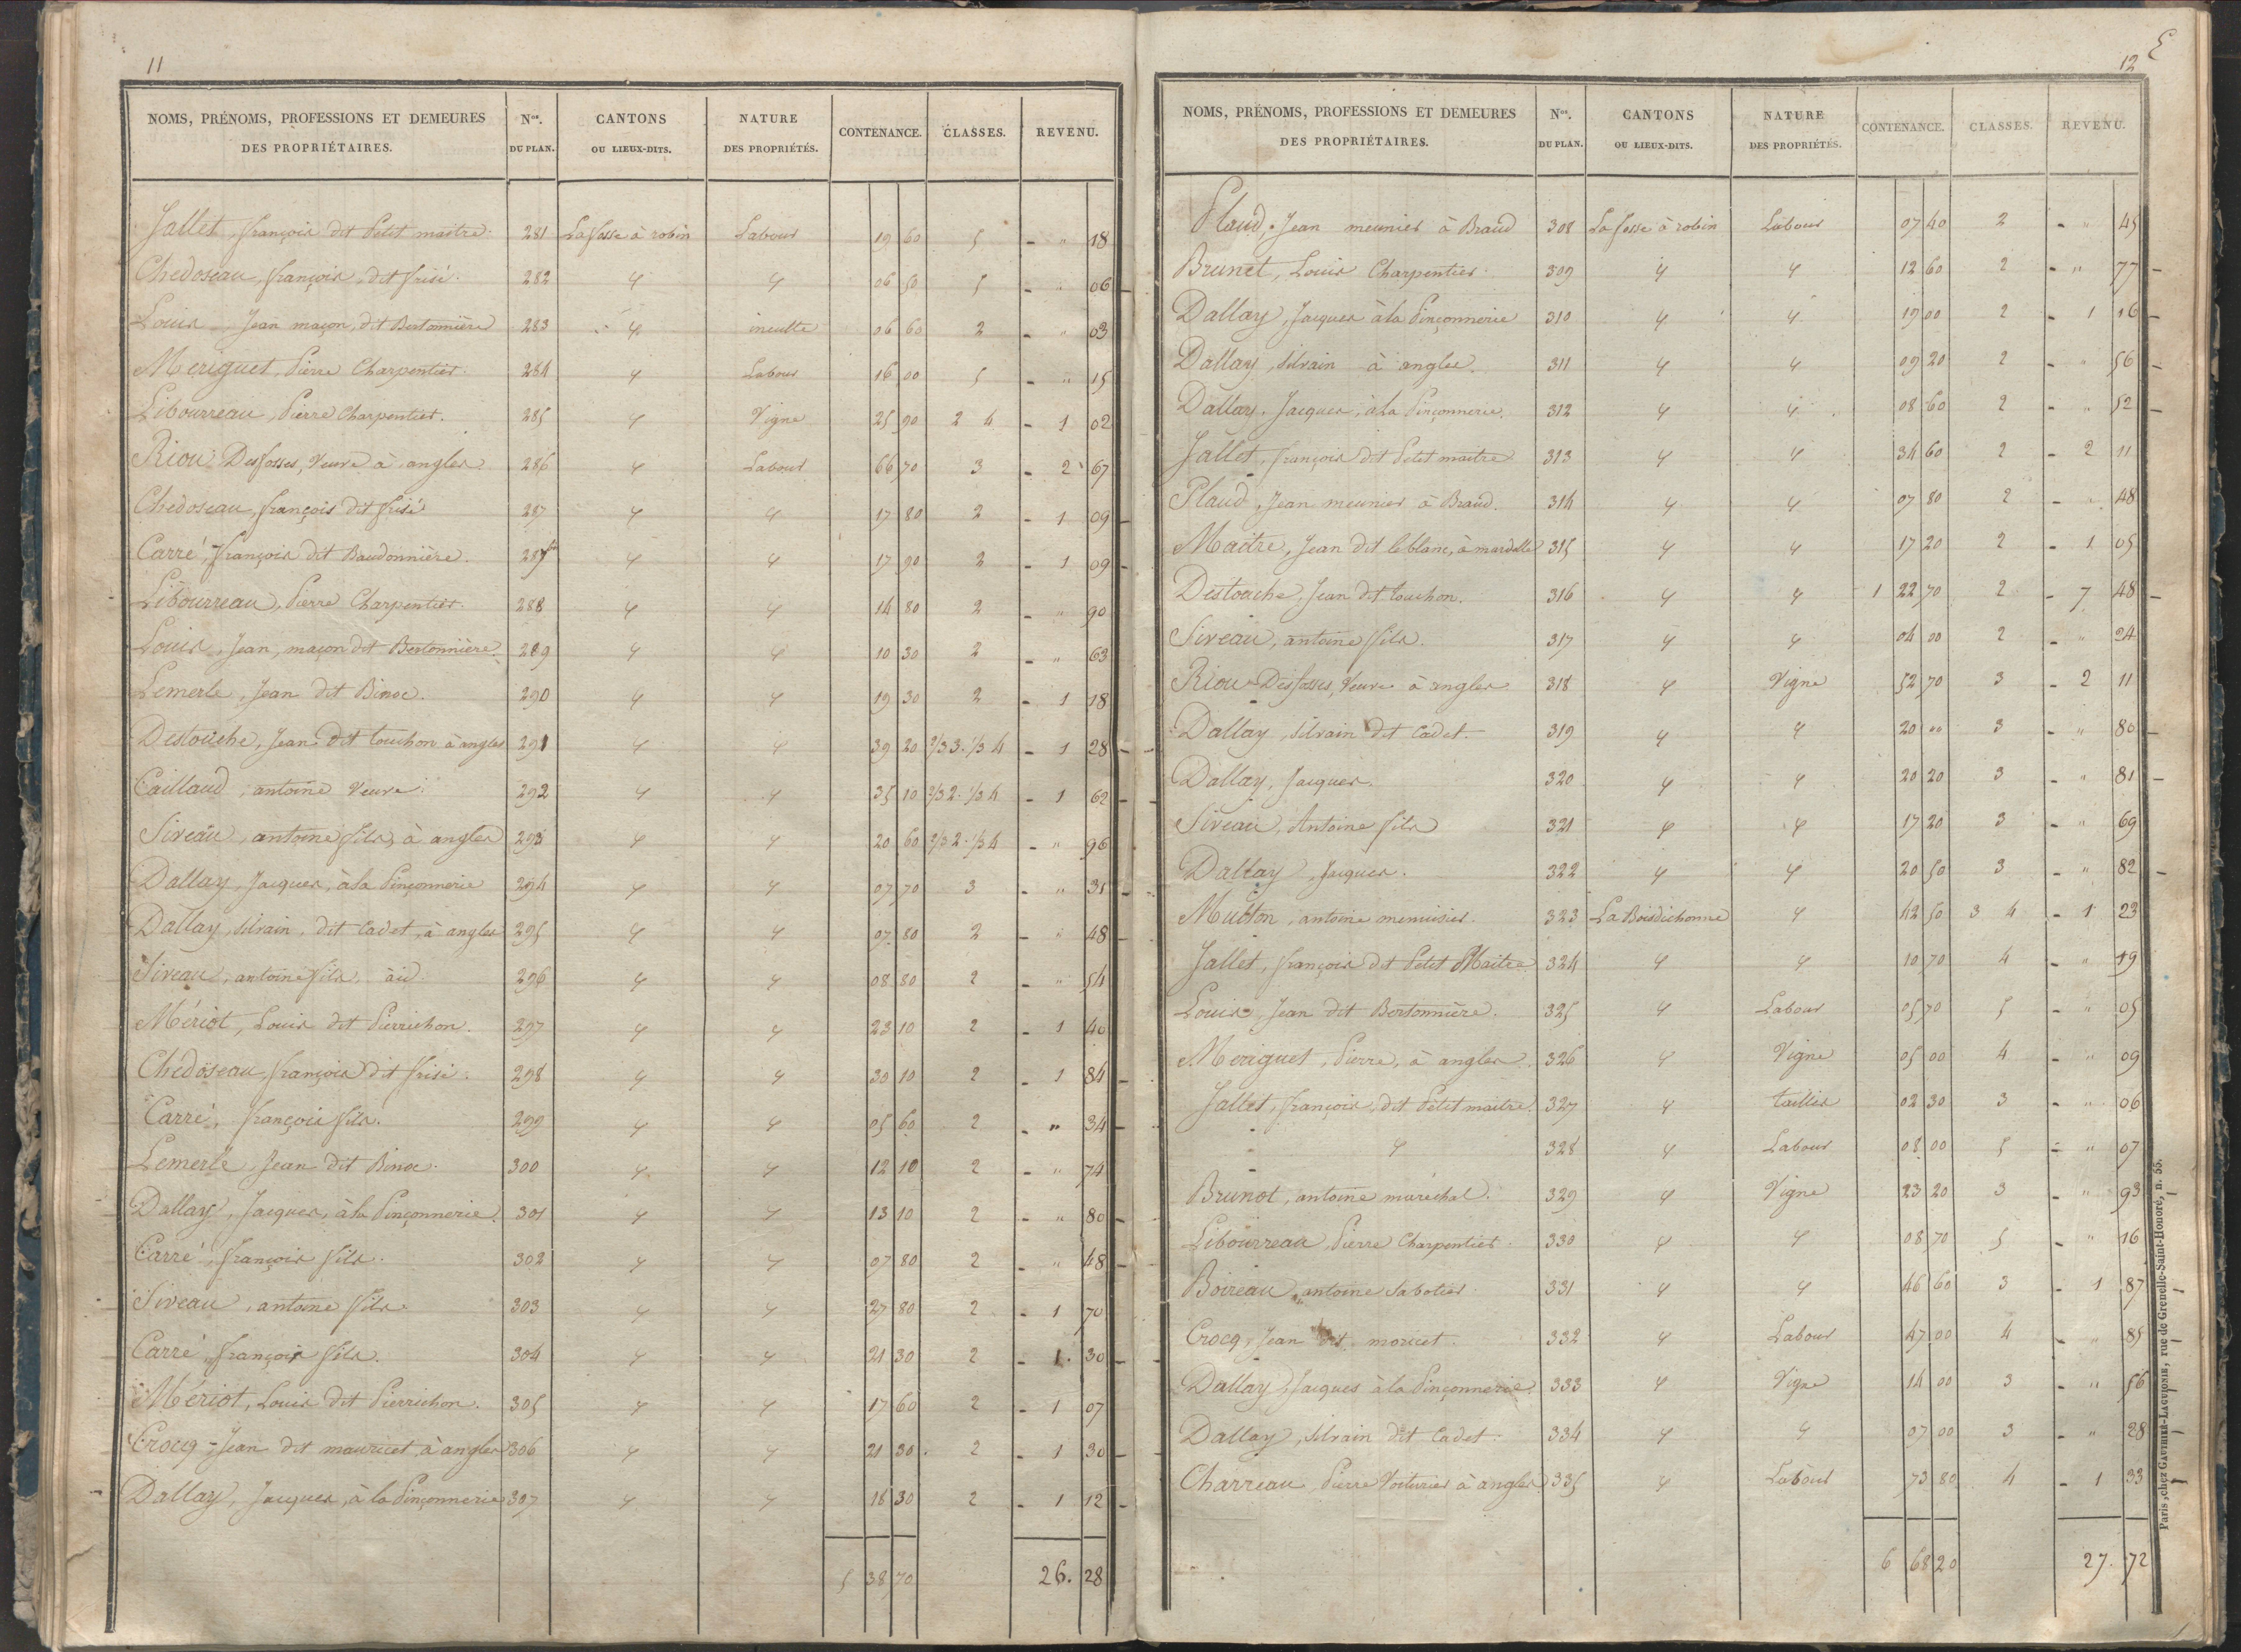 11
NOMS, PRÉNOMS, PROFESSIONS ET DEMEURES DES PROPRIÉTAIRES. Nos. DU PLAN. CANTONS OU LIEUX-DITS. NATURE DES PROPRIÉTÉS. CONTENANCE. CLASSES. REVENU.
Jallet, françois dit Petit maitre 281 La fosse à robin Labour 19 60 5 - " 18
Chedoseau, françois, dit frisé. 282 " " 06 50 5 - " 06
Louis, Jean maçon, dit Bertonnière 283 " inculte 06 60 2 - " 03
Meriguet, Pierre Charpentier. 284 " Labour 16 00 5 - " 15
Libourreau, Pierre Charpentier. 285 " Vigne 25 90 2 4 - 1 02
Riou Desfosses, Veuve à angles 286 " Labour 66 70 3 - 2 67
Chedoseau, françois dit frisé 287 " " 17 80 2 - 1 09
Carré, françois dit Baudonnière. 287 bis " " 17 90 2 - 1 09
Libourreau, Pierre Charpentier. 288 " " 14 80 2 - " 90
Louis, Jean, maçon dit Bertonnière. 289 " " 10 30 2 - " 63
Lemerle, Jean dit Binoc. 290 " " 19 30 2 - 1 18
Destouche, Jean dit touchon à angles 291 " " 39 20 2/3 3. 1/3 4 - 1 28
Caillaud, antoine Veuve. 292 " " 35 10 2/3 2. 1/3 4 - 1 62
Siveau, antoine fils, à angles 293 " " 20 60 2/3 2. 1/3 4 - " 96
Dallay, Jacques, à la Pinçonnerie 294 " " 07 70 3 - " 31
Dallay, silvain, dit Cadet, à angles 295 " " 07 80 2 - " 48
Siveau, antoine fils, àid. 296 " " 08 80 2 - " 54
Mériot, Louis dit Pierrichon. 297 " " 23 10 2 - 1 40
Chedoseau, françois dit frisé. 298 " " 30 10 2 - 1 84
Carré, françois fils. 299 " " 05 60 2 - " 34
Lemerle, Jean dit Binoc. 300 " " 12 10 2 - " 74
Dallay, Jacques, à la Pinçonnerie. 301 " " 13 10 2 - " 80
Carré, françois fils. 302 " " 07 80 2 - " 48
Siveau, antoine fils. 303 " " 27 80 2 - 1 70
Carré, françois fils. 304 " " 21 30 2 - 1. 30
Mériot, Louis dit Pierrichon. 305 " " 17 60 2 - 1 07
Crocq, Jean dit mauricet, à angles 306 " " 21 30. 2 - 1 30
Dallay, Jacques, à la Pinçonnerie 307 " " 18 30 2 - 1 12
5 38 70 26. 28
12
E
NOMS, PRÉNOMS, PROFESSIONS ET DEMEURES DES PROPRIÉTAIRES. Nos. DU PLAN. CANTONS OU LIEUX-DITS. NATURE DES PROPRIÉTÉS. CONTENANCE. CLASSES. REVENU.
Plaud, Jean meunier à Braud 308 La fosse à robin Labour 07 40 2 - " 45
Brunet, Louis Charpentier. 309 " " 12 60 2 - " 77
Dallay, Jacques à la Pinçonnerie 310 " " 19 00 2 - 1 16
Dallay, silvain à angles. 311 " " 09 20 2 - " 56
Dallay, Jacques, à la Pinçonnerie. 312 " " 08 60 2 - " 52
Jallet, françois dit Petit maitre 313 " " 34 60 2 - 2 11
Plaud, Jean meunier à Braud. 314 " " 07 80 2 - " 48
Maitre, Jean dit leblanc, à mardelle 315 " " 17 20 2 - 1 05
Destouche, Jean dit touchon. 316 " " 1 22 70 2 - 7 48
Siveau, antoine fils. 317 " " 04 00 2 - " 24
Riou Desfosses, Veuve à angles 318 " Vigne 52 70 3 - 2 11
Dallay, silvain dit Cadet. 319 " " 20 00 3 - " 80
Dallay, Jacques. 320 " " 20 20 3 - " 81
Siveau, Antoine fils 321 " " 17 20 3 - " 69
Dallay, Jacques. 322 " " 20 50 3 - " 82
Multon, antoine menuisier. 323 La Boisdichonne " 42 50 3 4 - 1 23
Jallet, françois dit Petit Maitre 324 " " 10 70 4 - " 19
Louis, Jean dit Bertonnière. 325 " Labour 05 70 5 - " 05
Meriguet, Pierre, à angles. 326 " Vigne 05 00 4 - " 09
Jallet, françois, dit Petit maitre. 327 " taillis 02 30 3 - " 06
" 328 " Labour 08 00 5 - " 07
Brunot, antoine maréchal. 329 " Vigne 23 20 3 - " 93
Libourreau, Pierre Charpentier. 330 " " 08 70 5 - " 16
Boireau, antoine Sabotier. 331 " " 46 60 3 - 1 87
Crocq, Jean dit moricet. 332 " Labour 47 00 4 - " 85
Dallay, Jacques à la Pinçonnerie. 333 " Vigne 14 00 3 - " 56
Dallay, silvain dit Cadet. 334 " " 07 00 3 - " 28
Charreau, Pierre Voiturier à angles 335 " Labour 73 80 4 - 1 33
6 68 20 27. 72
Paris, chez Gauthier-Laguionie, rue de Grenelle-Saint-Honoré, n. 55.